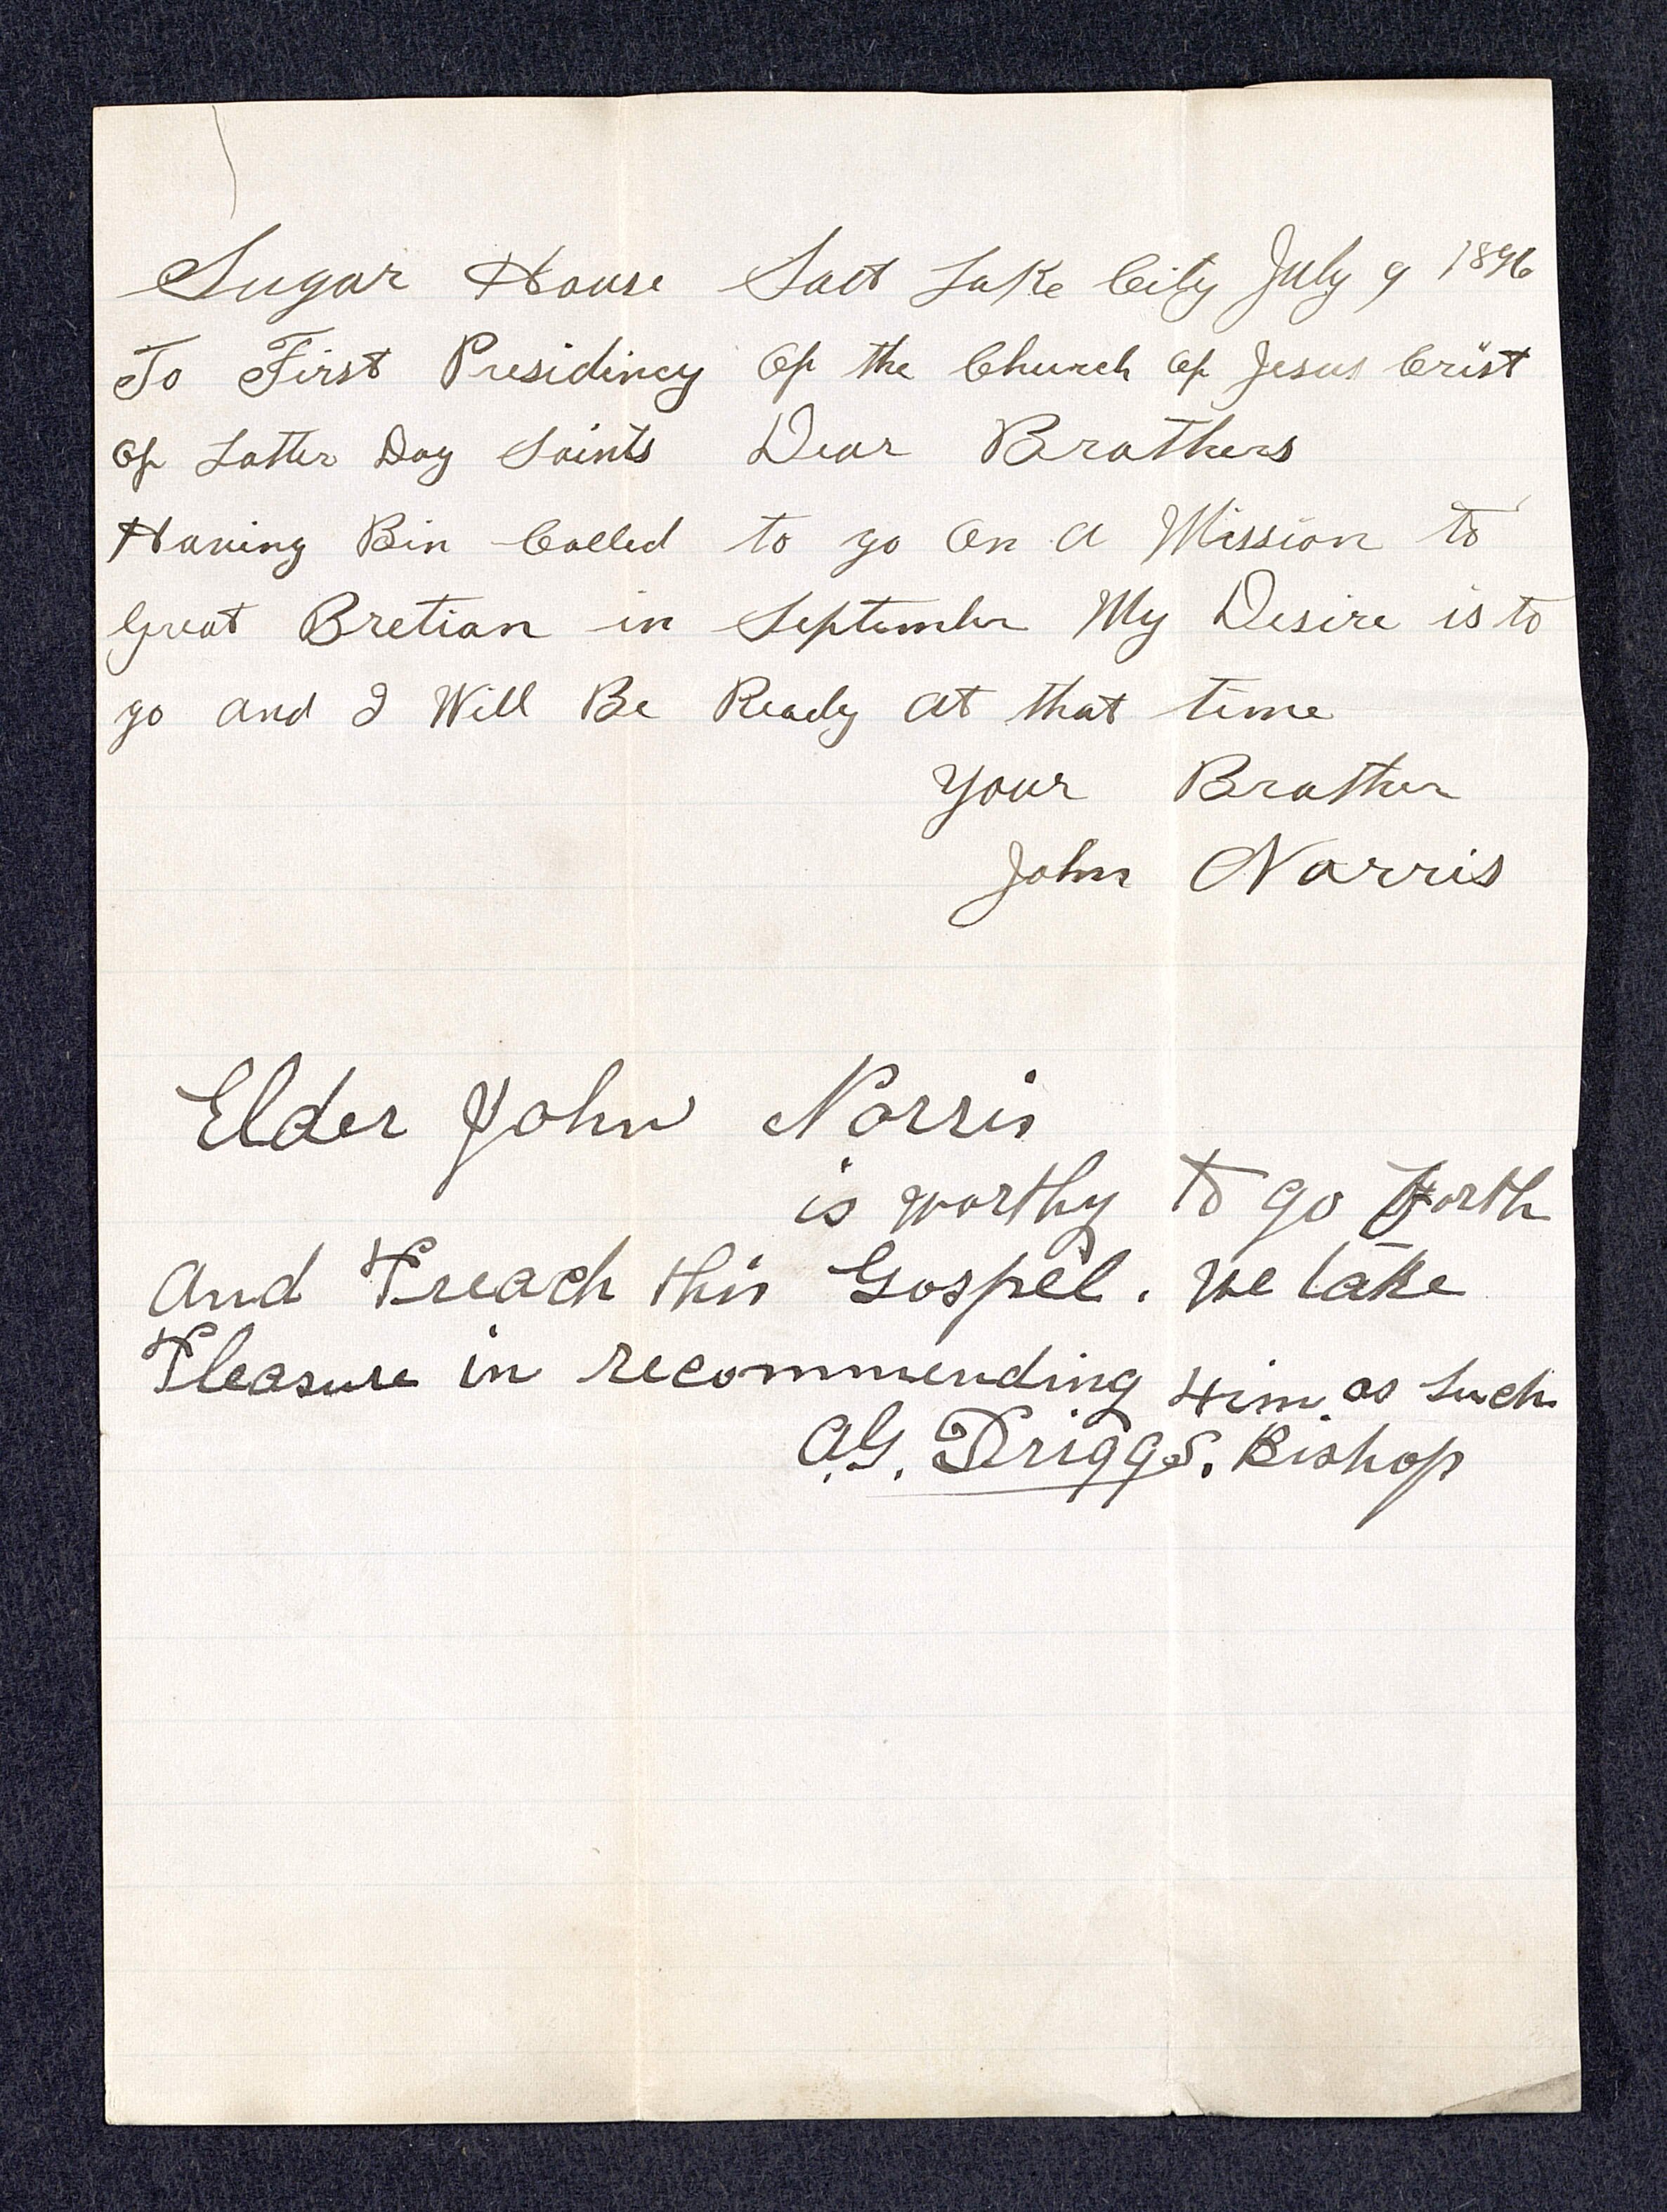 Sugar House Salt Lake City July 9 1896
To First Presidincy Of the Church Of Jesus Crist
Of Latter Day Saints Dear Brothers
Having Bin Called to go On A Mission to
Great Bretian in September My Desire is to
go and I Will Be Ready At that time
Your Brother
John Norris
Elder John Norris
is worthy to go Forth
And Preach this Gospel. We take
Pleasure in recommending Him as Such
A.G. Driggs. Bishop